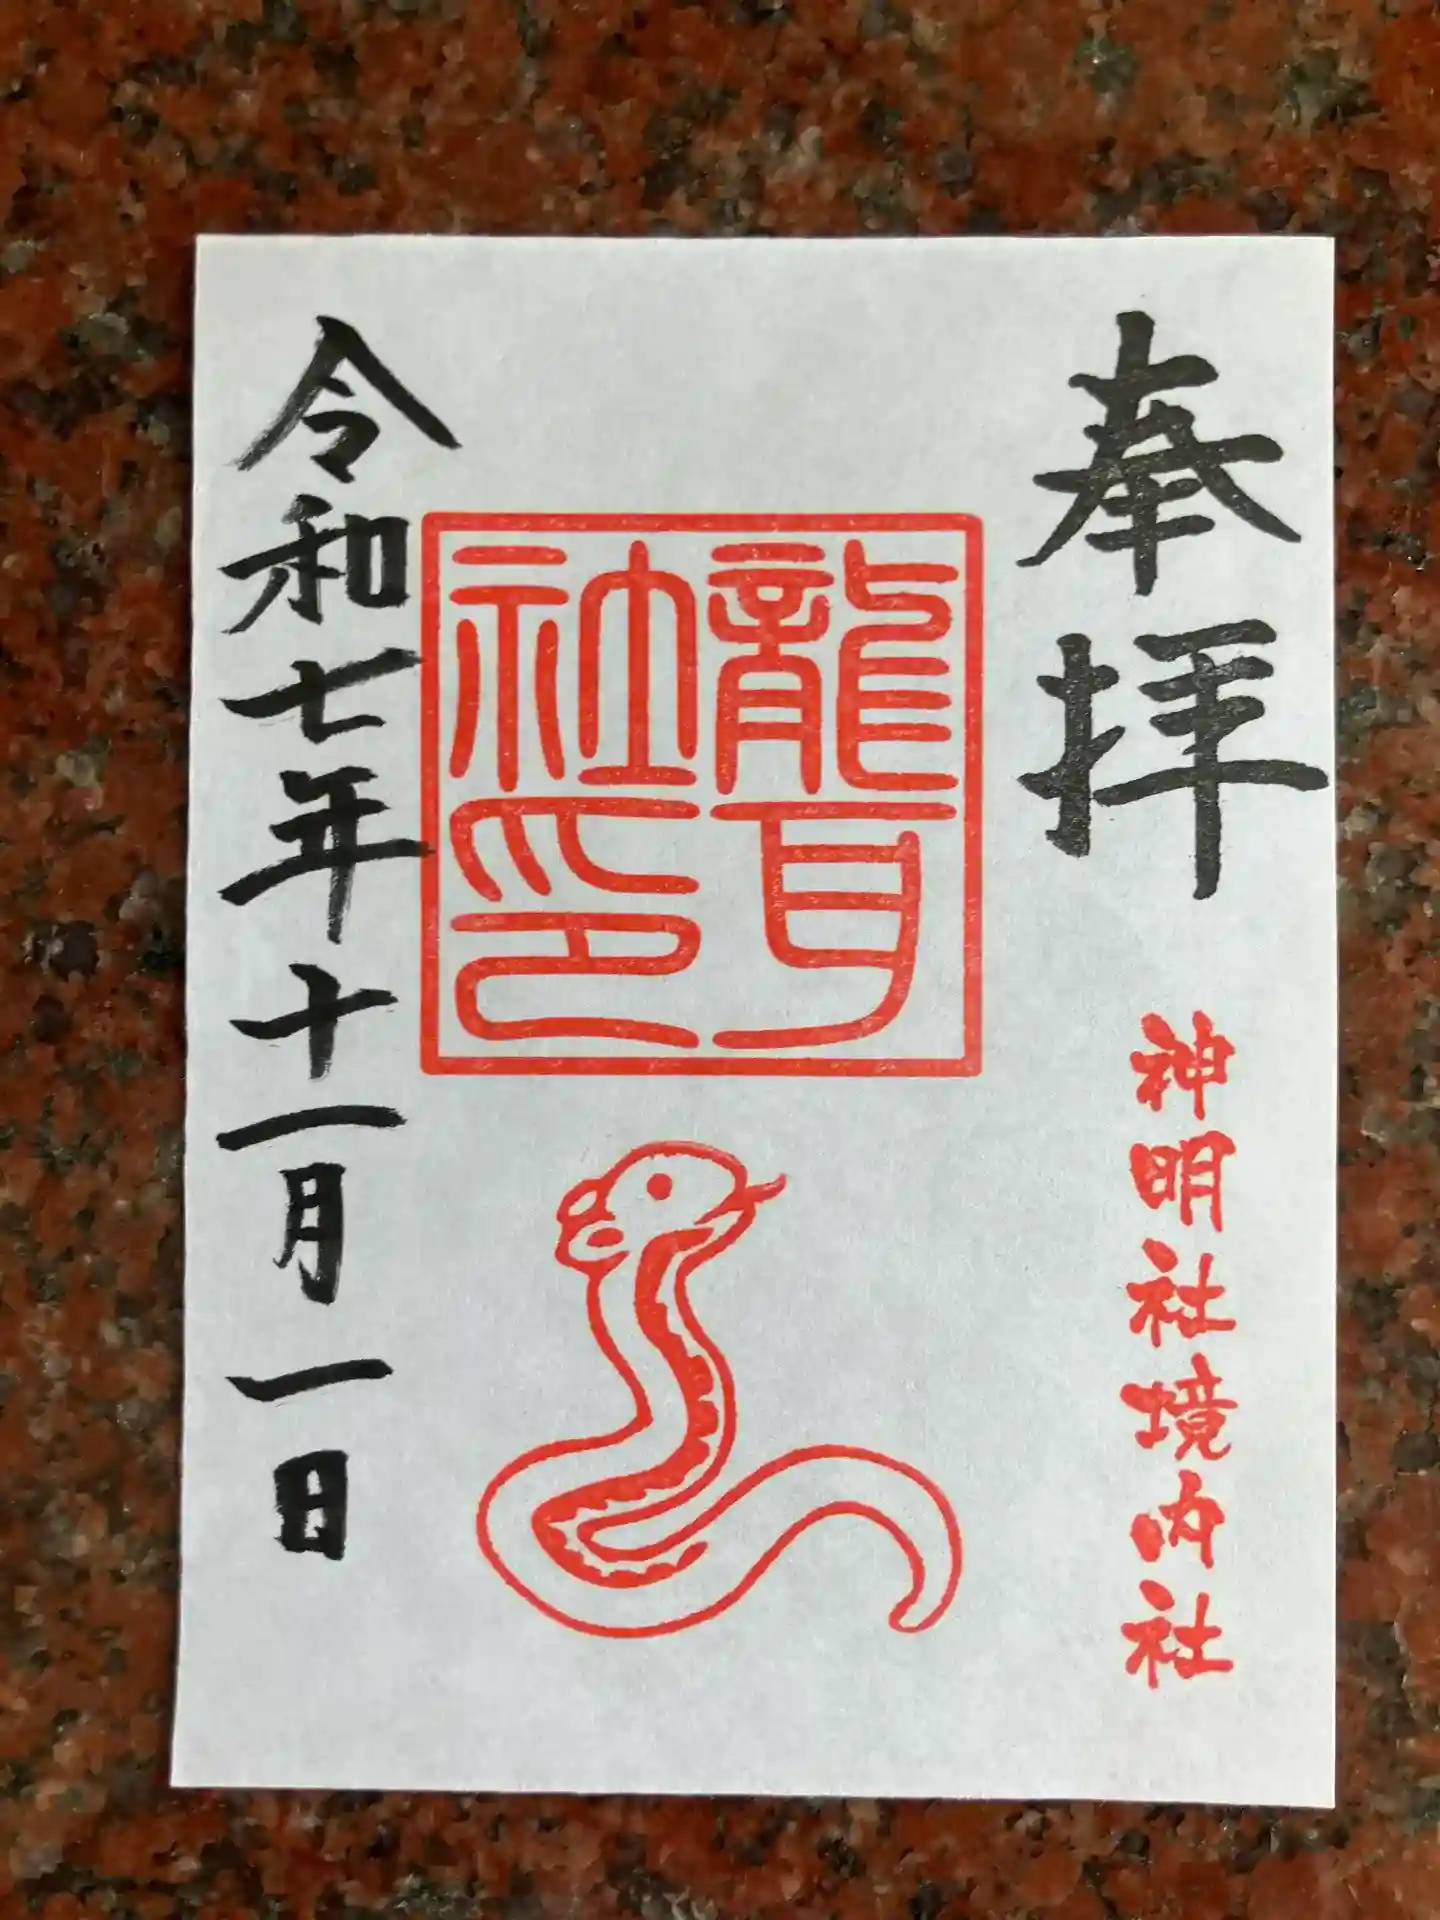 奉拝
神明社境内社
龍耳社印
令和七年十一月一日